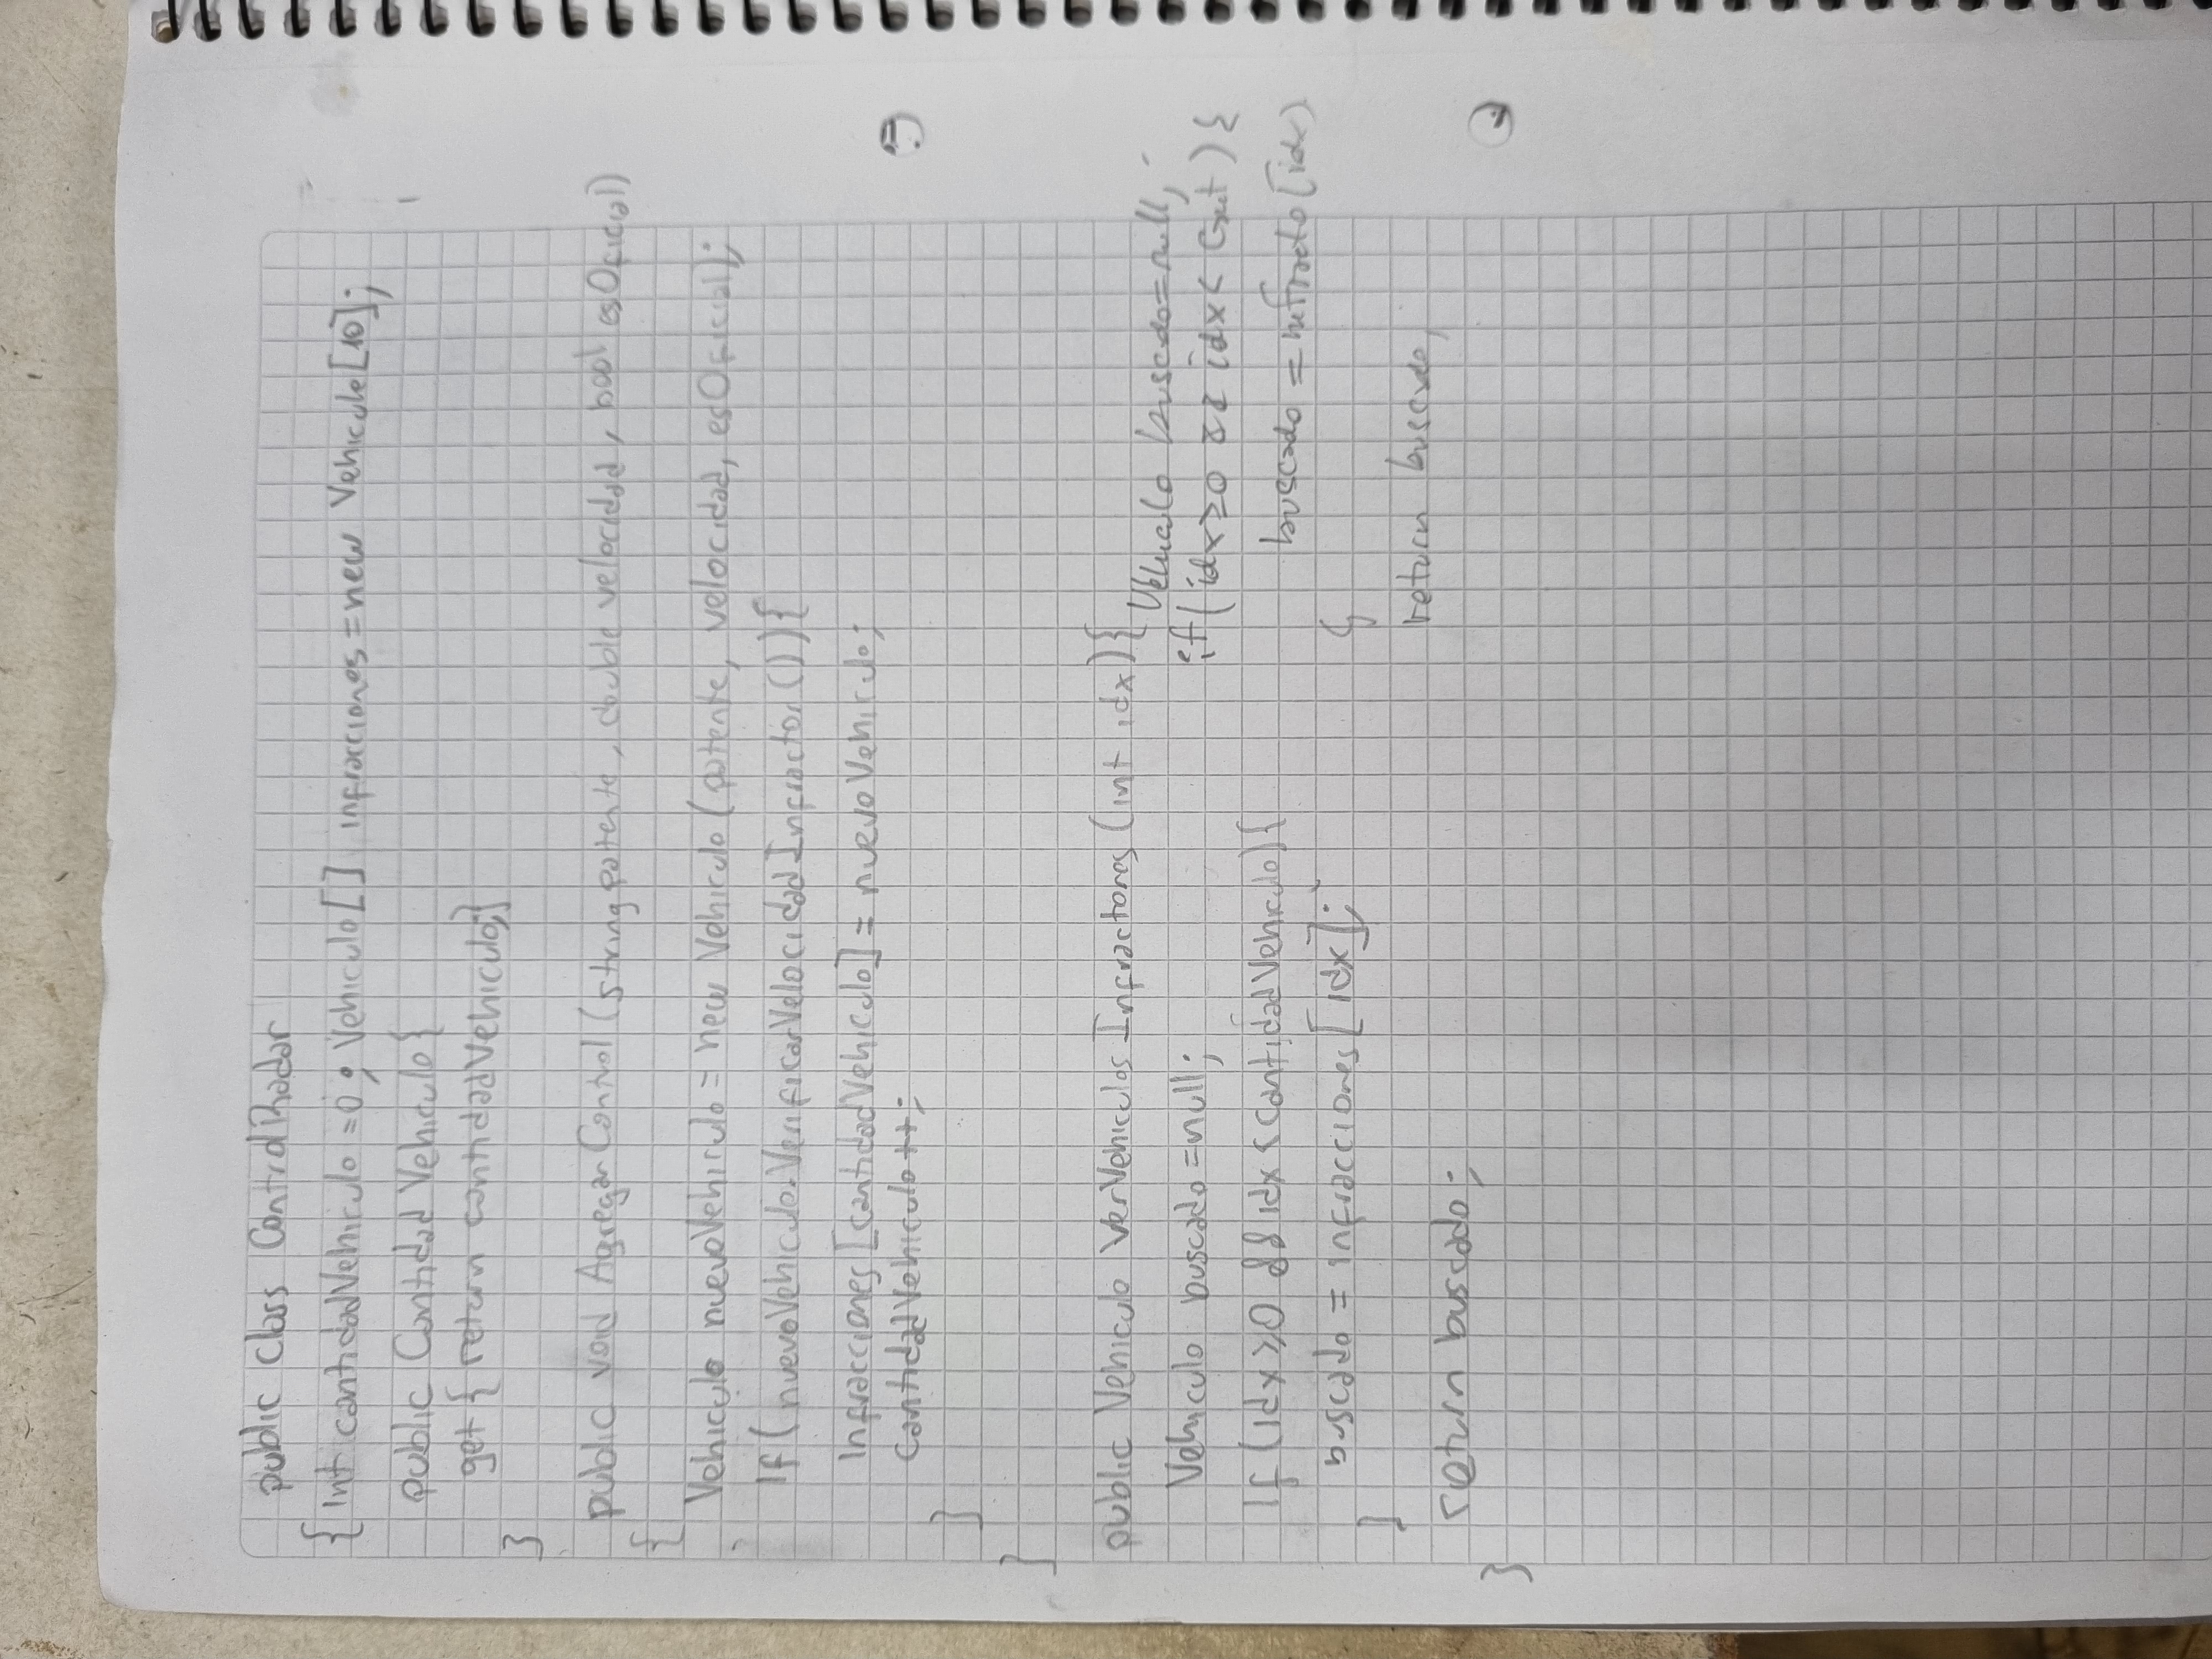 public class ControlRadar
{ int cantidadVehiculo = 0; Vehiculo[] infracciones = new Vehiculo[10];
public CantidadVehiculo{
get { return cantidadVehiculo;}
}
public void AgregarControl (string patente, double velocidad, bool esOficial)
{
Vehiculo nuevoVehiculo = new Vehiculo (patente, velocidad, esOficial);
if (nuevoVehiculo.VerificarVelocidadInfractor ()){
infracciones [cantidadVehiculo] = nuevoVehiculo;
cantidadVehiculo ++;
}
}
public Vehiculo VerVehiculosInfractores (int idx){
Vehiculo buscado = null;
if (idx ≥ 0 && idx < cantidadVehiculo){
buscado = infracciones [idx];
}
return buscado;
}
Vehiculo buscado = null;
if ( idx ≥ 0 && idx < Cant ) {
buscado = infracto [idx]
}
return buscado;